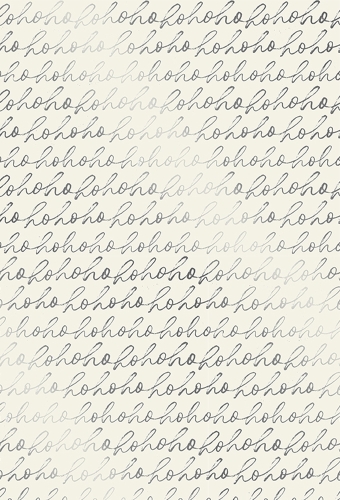 ohoho hohoho hohoho hohoho
ho hohoho hohoho hohoho hoh
oho hohoho hohoho hohoho ho
ohoho hohoho hohoho hohoho
ho hohoho hohoho hohoho hoh
oho hohoho hohoho hohoho ho
ohoho hohoho hohoho hohoho
ho hohoho hohoho hohoho hoh
oho hohoho hohoho hohoho ho
ho hohoho hohoho hohoho hoh
oho hohoho hohoho hohoho ho
ohoho hohoho hohoho hohoho
ho hohoho hohoho hohoho hoh
oho hohoho hohoho hohoho ho
ohoho hohoho hohoho hohoho
ho hohoho hohoho hohoho hoh
oho hohoho hohoho hohoho ho